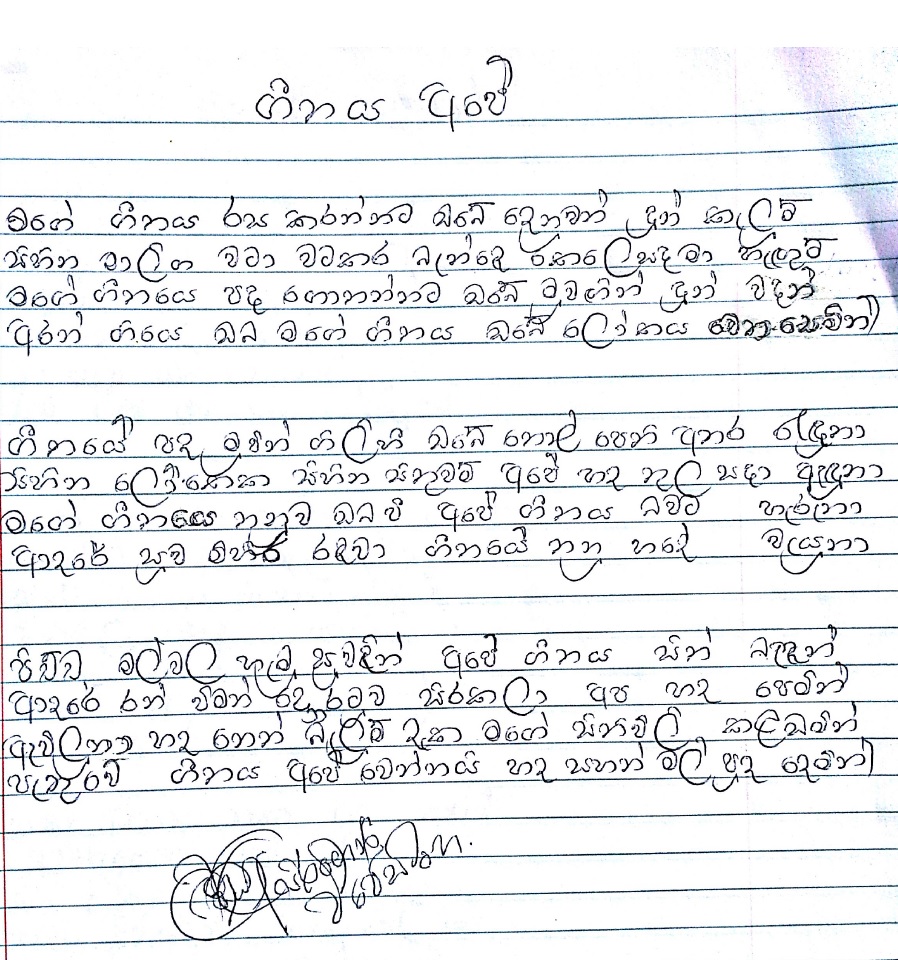 ගීතය අපේ
මගේ ගීතය රස කරන්නට ඔබේ දෙනුවන් දුන් කැලුම්
සිහින මාලිග වටා වටකර බැන්දෙ සඳ මා හැඟුම්
මගේ ගීතයෙ පද ගොතන්නට ඔබේ මුවගින් දුන් වදන්
අරන් ගියෙ ඔබ මගේ ගීතය ඔබේ ලෝකය
ගීතයේ පද මුවින් ගිලිහී ඔබේ තොල් පෙති අතර රැඳුනා
සිහින සිහින සතුටම අපේ හද තුල සදා ඇඳුනා
මගේ ගීතයෙ තනුව ඔබ වී අපේ ගීතය බවට හැරුනා
ආදරේ සුව රඳවා ගීතයේ තනු හදේ වැයුනා
පිච්ච මල්වල හැමූ සුවඳින් අපේ ගීතය සිත් බැඳන්
ආදරේ රන් විමන් මැද රමට සිරකලා අප හද පෙමින්
ඇවිලුනා හද නෙත් බැල්ම දැක මගේ සිතිවිලි කළඹමින්
ගීතය අපේ වෙන්නයි හද සහන් මල් පුද දෙමින්